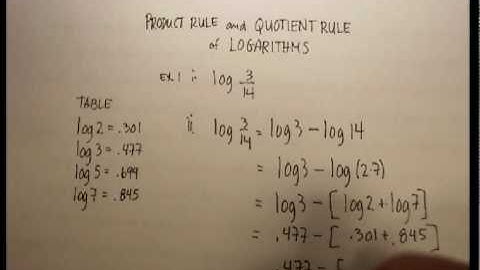 PRODUCT RULE and QUOTIENT RULE
of LOGARITHMS
EX. 1 i. log 3/14
TABLE
log 2 = .301
log 3 = .477
log 5 = .699
log 7 = .845
ii. log 3/14 = log 3 - log 14
= log 3 - log (2·7)
= log 3 - [log 2 + log 7]
= .477 - [.301 + .845]
.477 - [